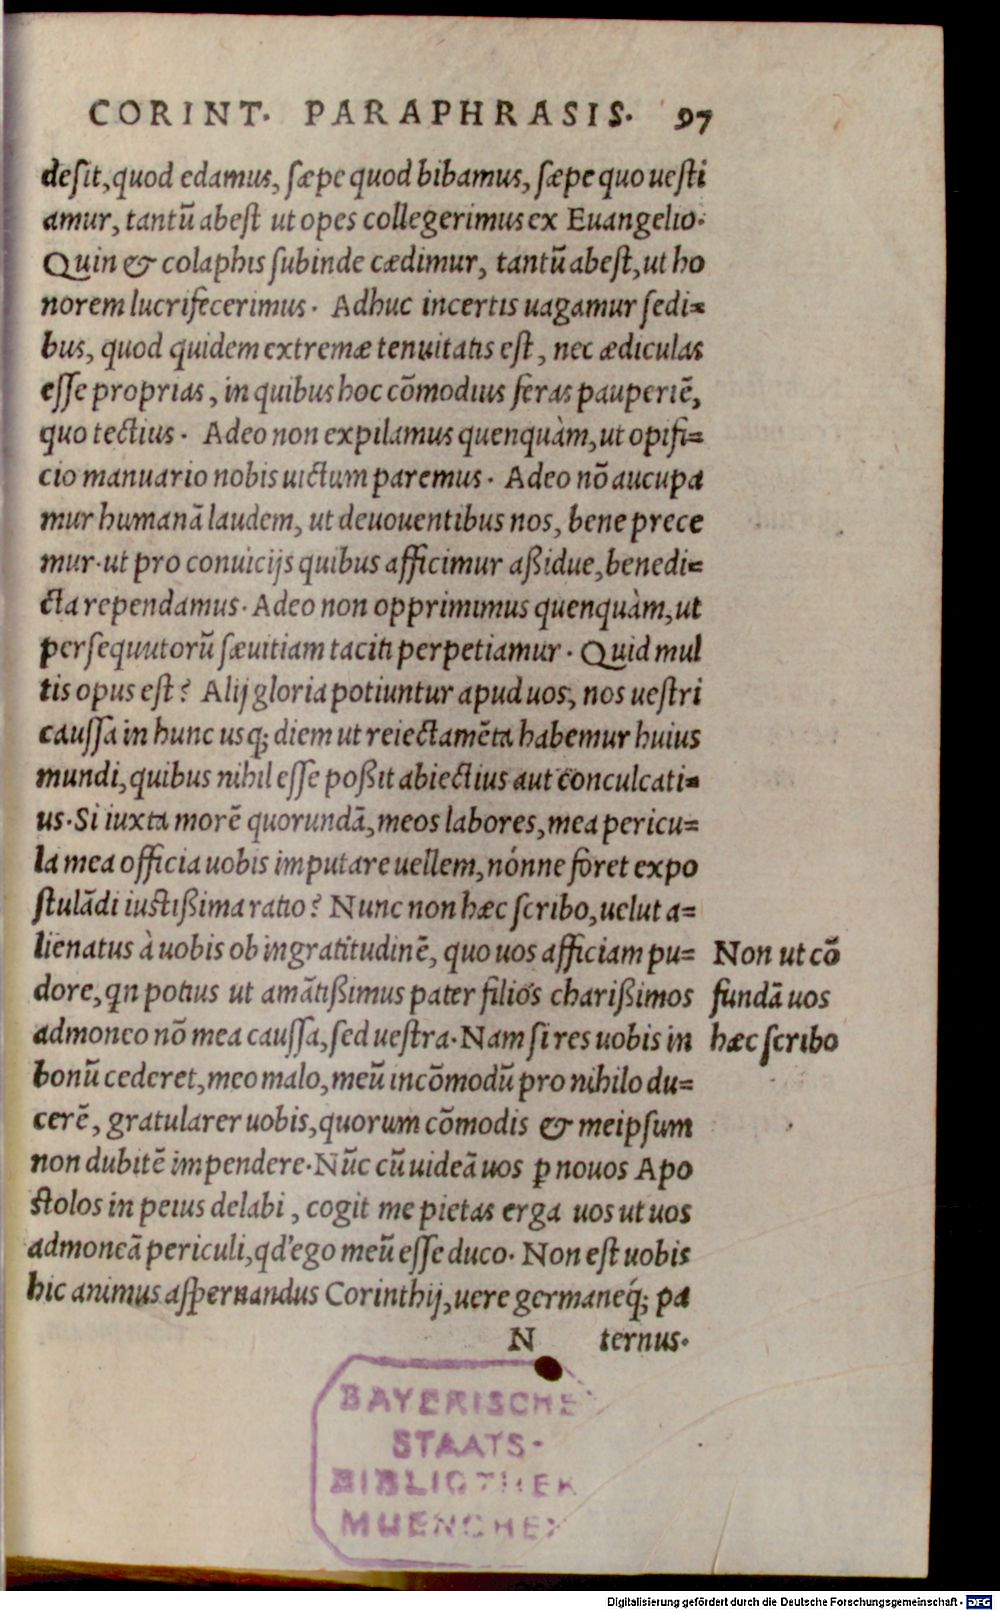 CORINT. PARAPHRASIS. 97
desit, quod edamus, sæpe quod bibamus, sæpe quo uesti
amur, tantũ abest ut opes collegerimus ex Euangelio.
Quin & colaphis subinde cædimur, tantũ abest, ut ho
norem lucrifecerimus. Adhuc incertis uagamur sedi=
bus, quod quidem extremæ tenuitatis est, nec ædiculas
esse proprias, in quibus hoc cõmodius feras pauperiẽ,
quo tectius. Adeo non expilamus quenquàm, ut opifi=
cio manuario nobis uictum paremus. Adeo nõ aucupa
mur humanã laudem, ut deuouentibus nos, bene prece
mur. ut pro conuicijs quibus afficimur aßidue, benedi=
cta rependamus. Adeo non opprimimus quenquàm, ut
persequutorũ sæuitiam taciti perpetiamur. Quid mul
tis opus est? Alij gloria potiuntur apud uos, nos uestri
caussa in hunc usq; diem ut reiectamẽta habemur huius
mundi, quibus nihil esse poßit abiectius aut conculcati=
us. Si iuxta morẽ quorundã, meos labores, mea pericu=
la mea officia uobis imputare uellem, nónne foret expo
stulãdi iustißima ratio? Nunc non hæc scribo, uelut a=
lienatus à uobis ob ingratitudinẽ, quo uos afficiam pu=
dore, qn potius ut amãtißimus pater filios charißimos
admoneo nõ mea caussa, sed uestra. Nam si res uobis in
bonũ cederet, meo malo, meũ incõmodũ pro nihilo du=
cerẽ, gratularer uobis, quorum cõmodis & meipsum
non dubitẽ impendere. Nũc cũ uideã uos ꝑ nouos Apo
stolos in peius delabi, cogit me pietas erga uos ut uos
admoneã periculi, qd' ego meũ esse duco. Non est uobis
hic animus aspernandus Corinthij, uere germaneq́; pa
N ternus.
Non ut cõ
fundã uos
hæc scribo
BAYERISCHE
STAATS-
BIBLIOTHEK
MUENCHEN
Digitalisierung gefördert durch die Deutsche Forschungsgemeinschaft - DFG